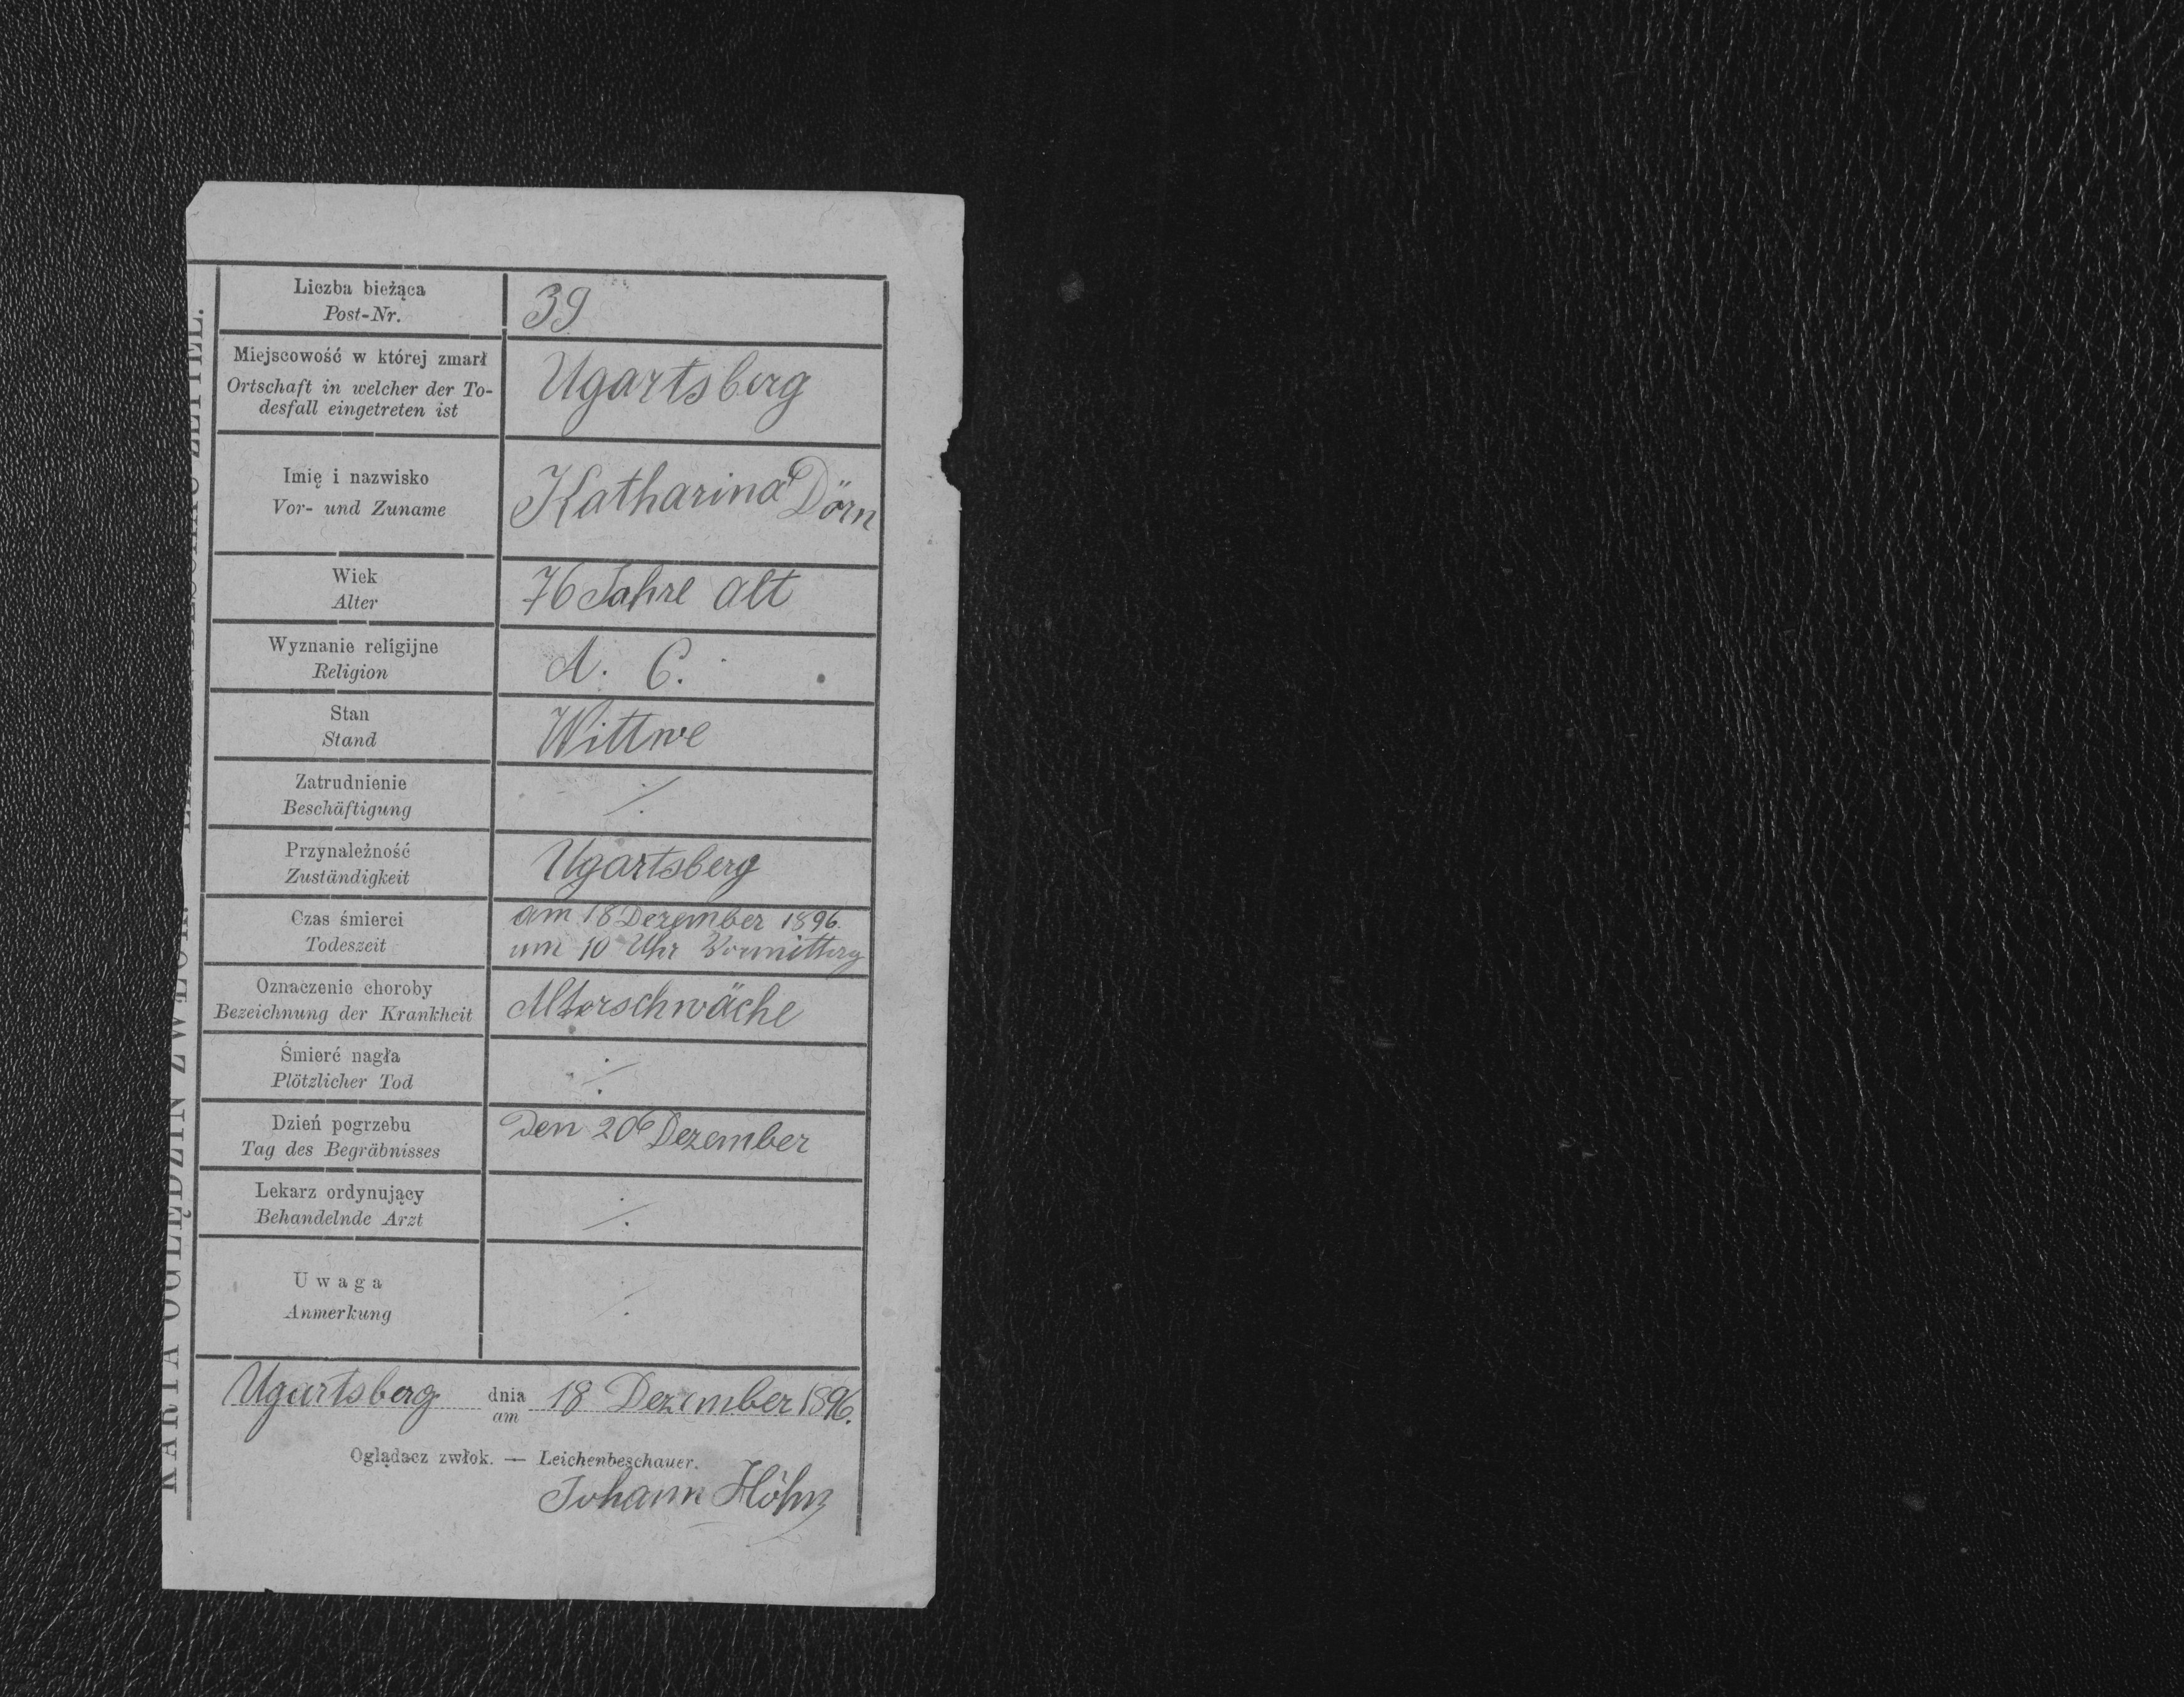 KARTA OGLĘDZIN ZWŁOK.
Liczba bieżąca
Post-Nr.
39
Miejscowość w której zmarł
Ortschaft in welcher der To-
desfall eingetreten ist
Ugartsberg
Imię i nazwisko
Vor- und Zuname
Katharina Dörn
Wiek
Alter
76 Jahre alt
Wyznanie religijne
Religion
A. C.
Stan
Stand
Wittwe
Zatrudnienie
Beschäftigung
./.
Przynależność
Zuständigkeit
Ugartsberg
Czas śmierci
Todeszeit
am 18 Dezember 1896.
um 10 Uhr Vormittag
Oznaczenie choroby
Bezeichnung der Krankheit
Alterschwäche
Śmierć nagła
Plötzlicher Tod
./.
Dzień pogrzebu
Tag des Begräbnisses
Den 20 Dezember
Lekarz ordynujący
Behandelnde Arzt
./.
Uwaga
Anmerkung
./.
Ugartsberg dnia am 18 Dezember 1896.
Oglądacz zwłok. — Leichenbeschauer.
Johann Höhn